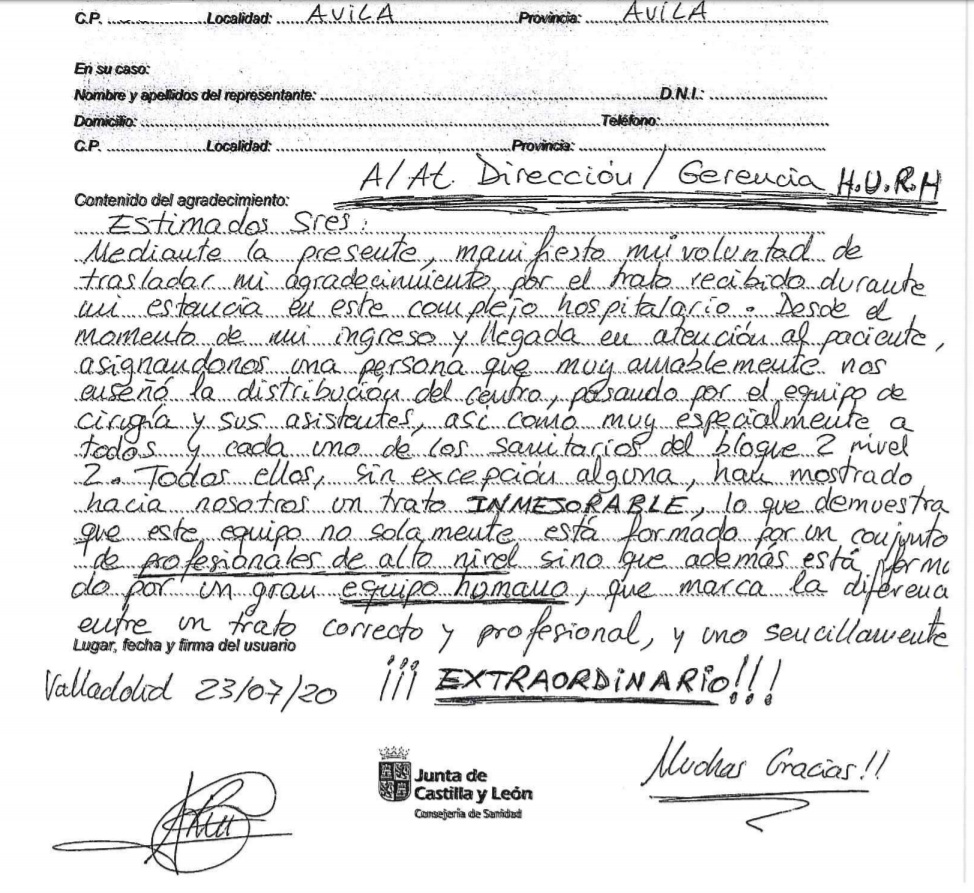 C.P. ............ Localidad: AVILA Provincia: AVILA
En su caso:
Nombre y apellidos del representante: D.N.I.:
Domicilio: Teléfono:
C.P. Localidad: Provincia:
A/At. Dirección / Gerencia H.U.R.H
Contenido del agradecimiento:
Estimados Sres:
Mediante la presente, manifiesto mi voluntad de
trasladar mi agradecimiento, por el trato recibido durante
mi estancia en este complejo hospitalario. Desde el
momento de mi ingreso y llegada en atención al paciente,
asignandonos una persona que muy amablemente nos
enseñó la distribución del centro, pasando por el equipo de
cirugía y sus asistentes, así como muy especialmente a
todos y cada uno de los sanitarios del bloque 2 nivel
2. Todos ellos, sin excepción alguna, han mostrado
hacia nosotros un trato INMEJORABLE, lo que demuestra
que este equipo no solamente está formado por un conjunto
de profesionales de alto nivel sino que además está forma
do por un gran equipo humano, que marca la diferencia
entre un trato correcto y profesional, y uno sencillamente
Lugar, fecha y firma del usuario
Valladolid 23/07/20 ¡¡¡ EXTRAORDINARIO!!!
Junta de
Castilla y León
Consejería de Sanidad
Muchas Gracias!!